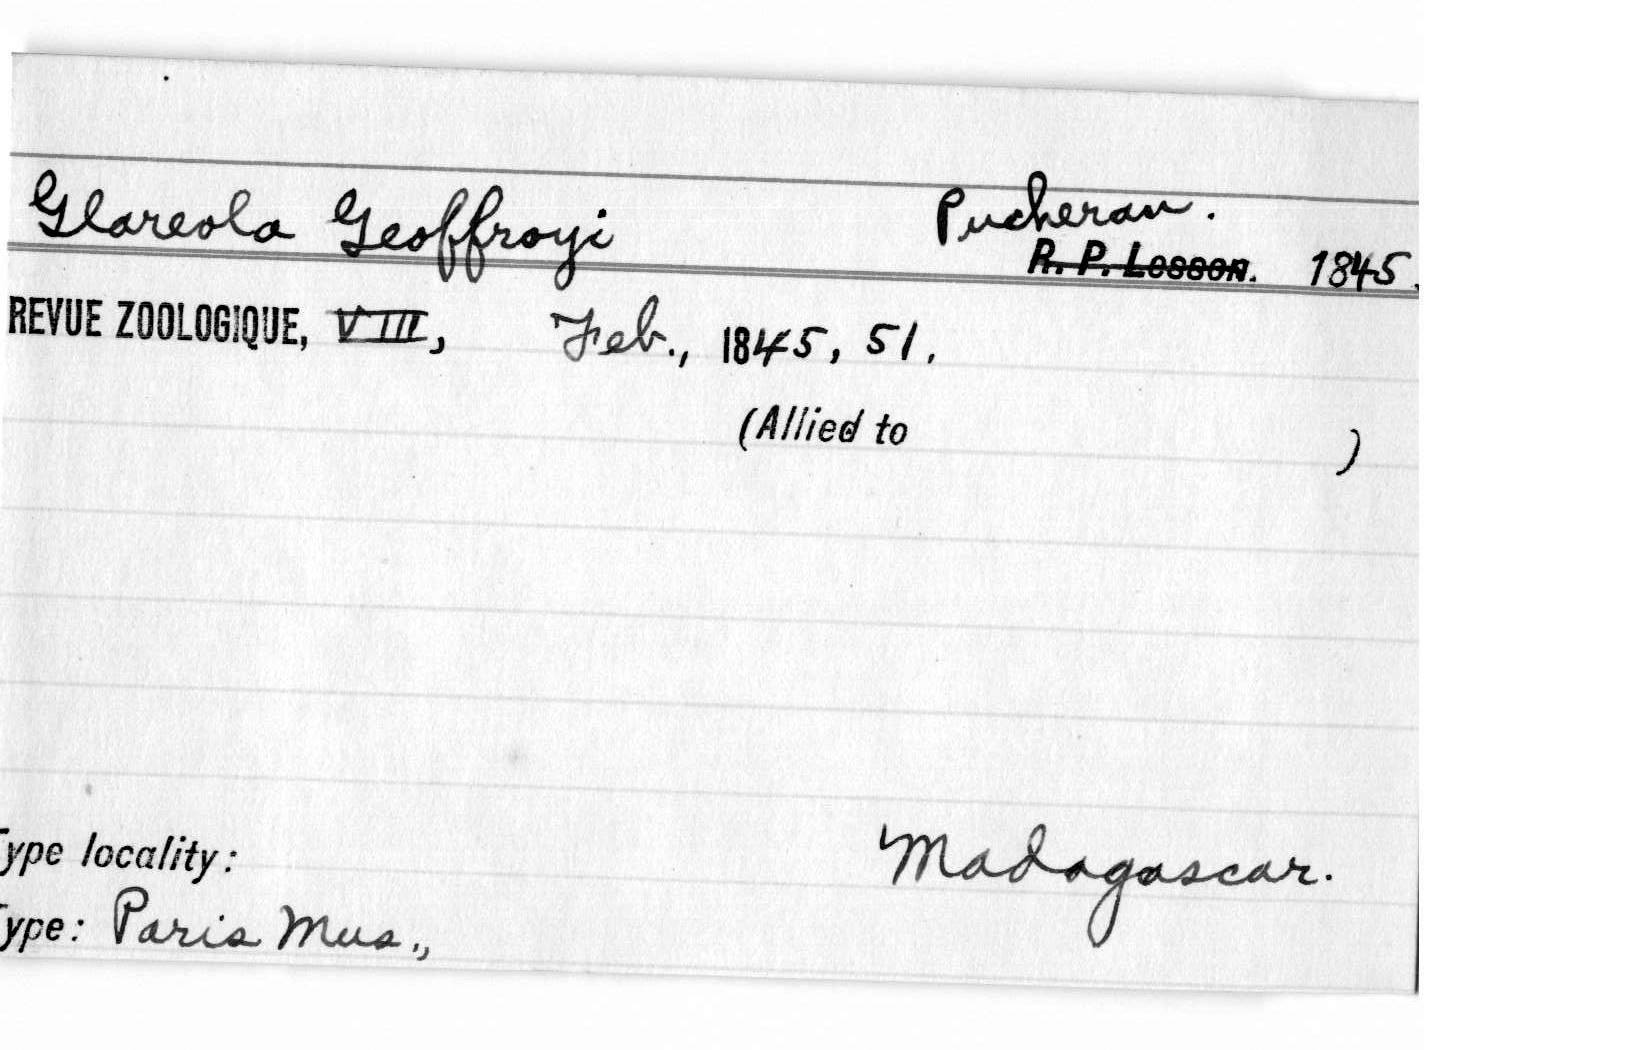 Glareola Geoffroyi Pucheran.
R. P. Lesson. 1845.
REVUE ZOOLOGIQUE, VIII, Feb., 1845, 51.
(Allied to )
Type locality: Madagascar.
Type: Paris Mus.,